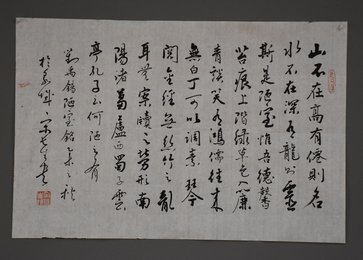 山不在高有僊則名
水不在深有龍則靈
斯是陋室惟吾德馨
苔痕上階綠草色入簾
青談笑有鴻儒往來
無白丁可以調素琴
閱金經無絲竹之亂
耳無案牘之勞形南
陽諸葛廬西蜀子雲
亭孔子云何陋之有
劉禹錫陋室銘